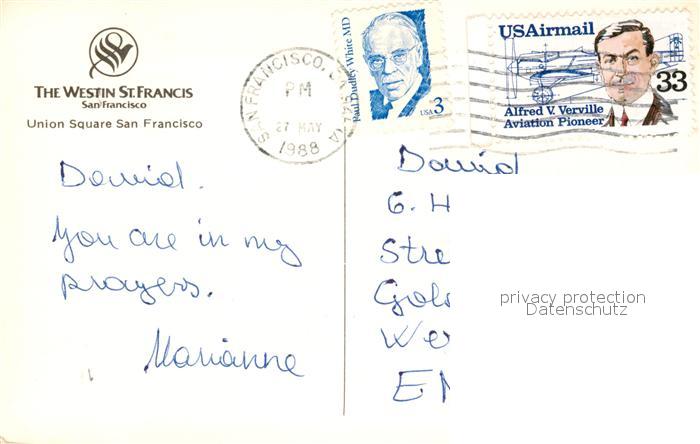 THE WESTIN ST. FRANCIS
San Francisco
Union Square San Francisco
SAN FRANCISCO, CA
PM
27 MAY
1988
Paul Dudley White MD
USA 3
USAirmail
33
Alfred V. Verville
Aviation Pioneer
David.
You are in my
prayers.
Marianne
David
G. H
Stre
Gol
We
EN
privacy protection
Datenschutz